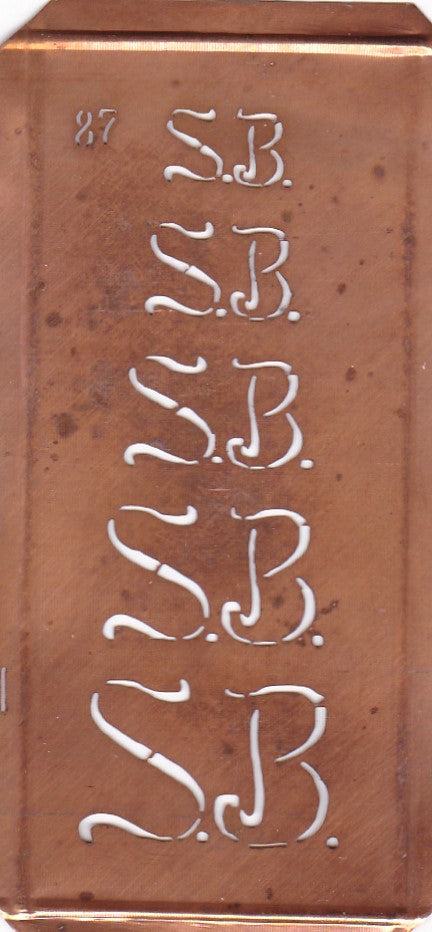 87 S.B.
S.B.
S.B.
S.B.
S.B.